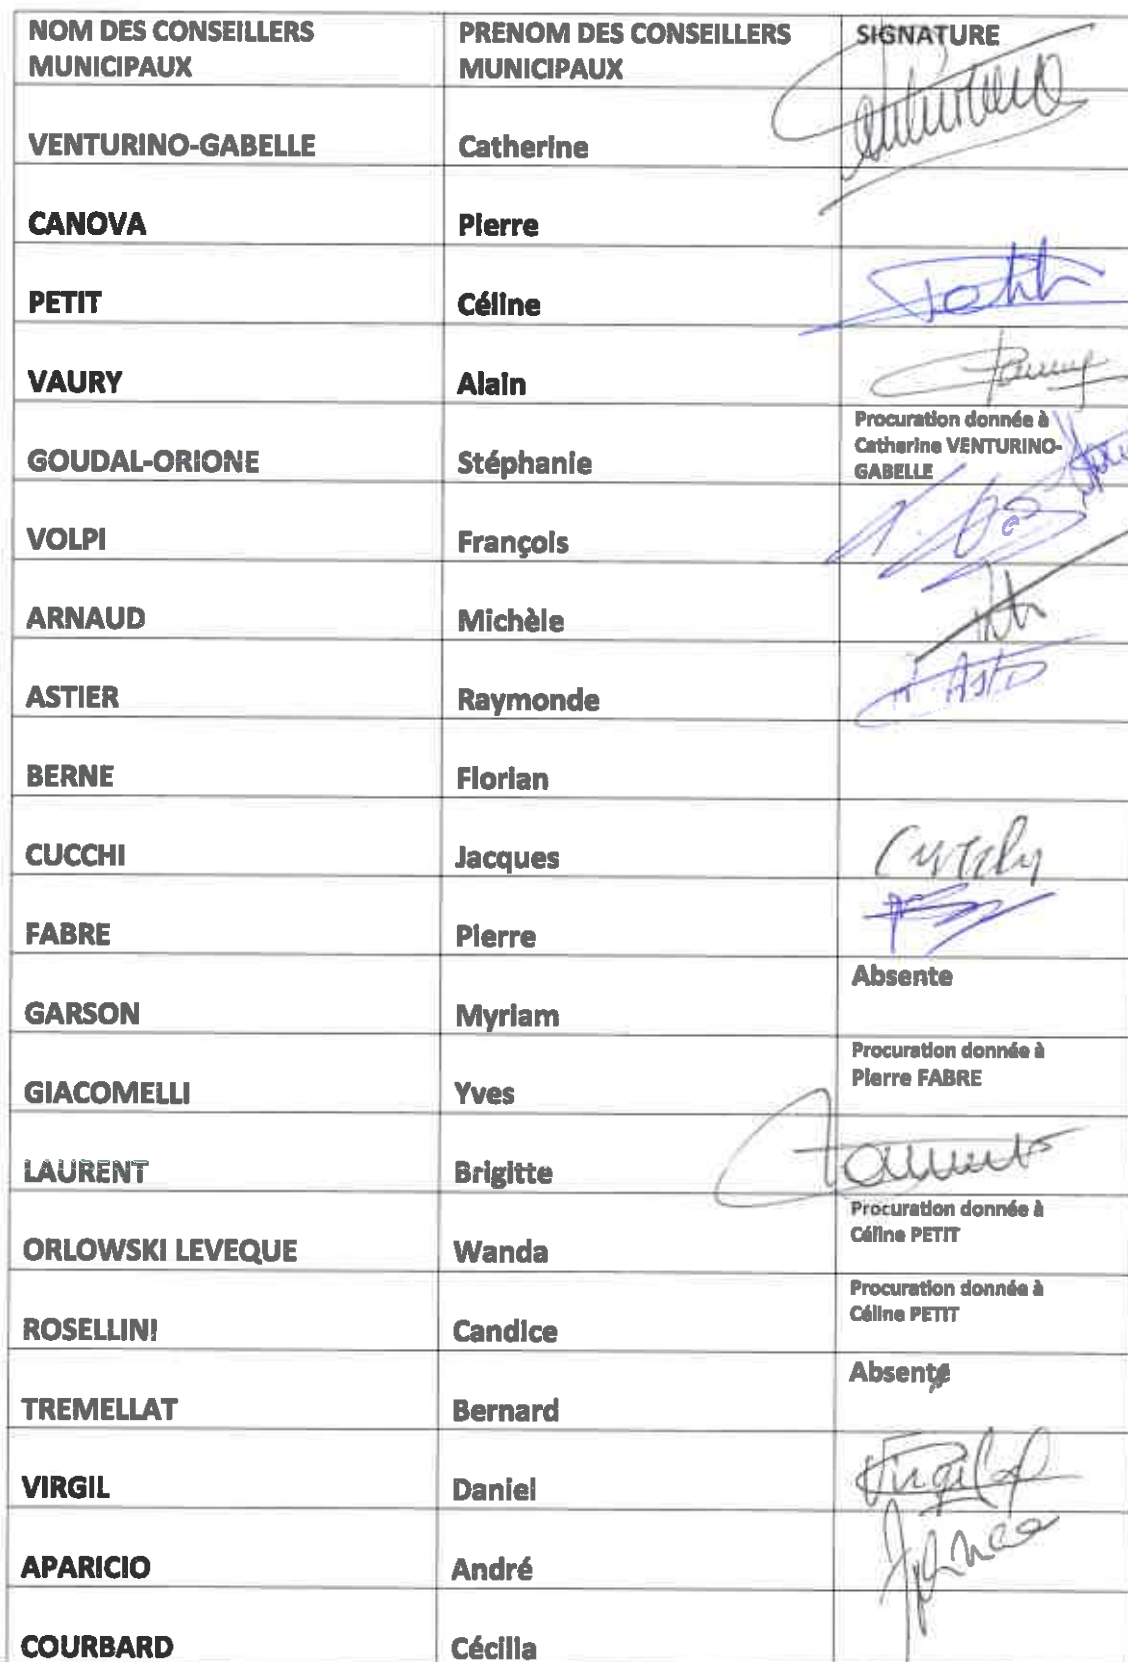 NOM DES CONSEILLERS MUNICIPAUX PRENOM DES CONSEILLERS MUNICIPAUX SIGNATURE
VENTURINO-GABELLE Catherine
CANOVA Pierre
PETIT Céline Petit
VAURY Alain Vaury
GOUDAL-ORIONE Stéphanie Procuration donnée à Catherine VENTURINO-GABELLE
VOLPI François
ARNAUD Michèle
ASTIER Raymonde
BERNE Florian
CUCCHI Jacques
FABRE Pierre
GARSON Myriam Absente
GIACOMELLI Yves Procuration donnée à Pierre FABRE
LAURENT Brigitte
ORLOWSKI LEVEQUE Wanda Procuration donnée à Céline PETIT
ROSELLINI Candice Procuration donnée à Céline PETIT
TREMELLAT Bernard Absent
VIRGIL Daniel Virgil
APARICIO André
COURBARD Cécilia